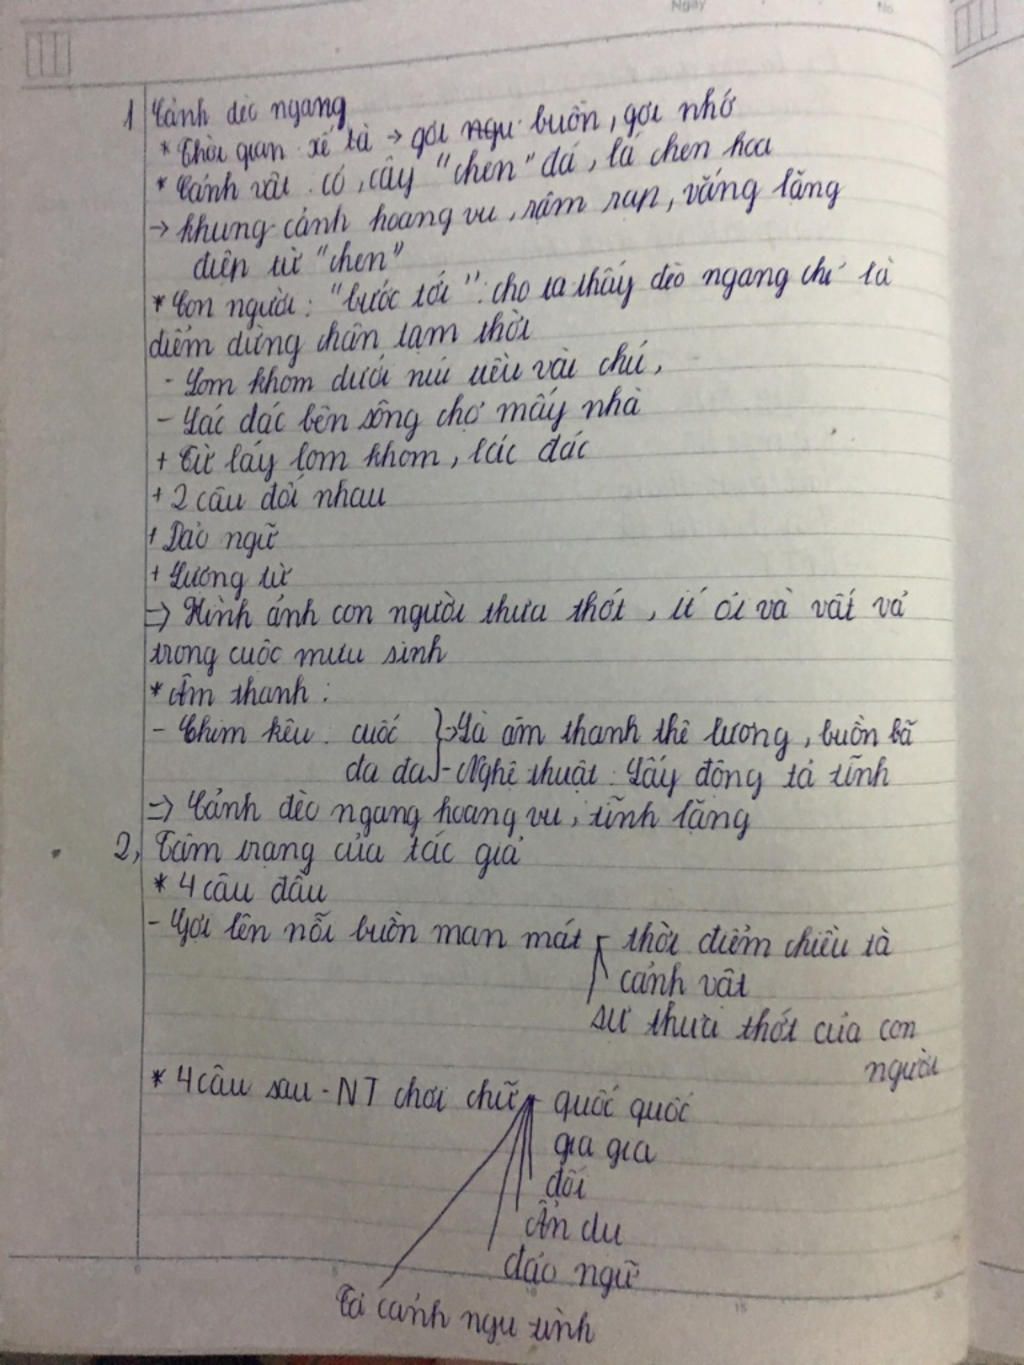 Ngày No.
1 Cảnh đèo ngang
* Thời gian xế tà → gợi ngu buồn, gợi nhớ
* Cảnh vật : cỏ, cây "chen" đá, lá chen hoa
→ khung cảnh hoang vu, rậm rạp, vắng lặng
điệp từ "chen"
* Con người : "bước tới" : cho ta thấy đèo ngang chỉ là
điểm dừng chân tạm thời
- Lom khom dưới núi tiều vài chú,
- Lác đác bên sông chợ mấy nhà
+ Từ láy lom khom, lác đác
+ 2 câu đối nhau
+ Đảo ngữ
+ Lượng từ
=> Hình ảnh con người thưa thớt, ít ỏi và vất vả
trong cuộc mưu sinh
* Âm thanh :
- Chim kêu : cuốc }=> Là âm thanh thê lương, buồn bã
da da - Nghệ thuật : Lấy động tả tĩnh
=> Cảnh đèo ngang hoang vu, tĩnh lặng
2, Tâm trạng của tác giả
* 4 câu đầu
- Gợi lên nỗi buồn man mát - thời điểm chiều tà
cảnh vật
sự thưa thớt của con
người
* 4 câu sau - NT chơi chữ - quốc quốc
gia gia
đối
Ẩn dụ
đảo ngữ
Tả cảnh ngụ tình